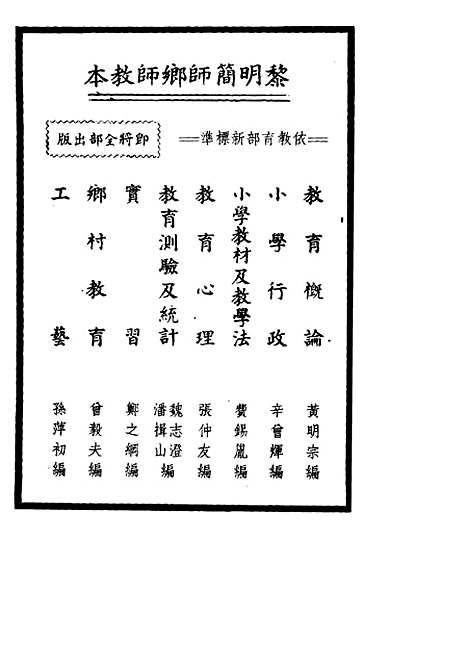 黎明簡師鄉師教本
══依教育部新標準══
即將全部出版
教育概論 黃明宗編
小學行政 辛曾輝編
小學教材及教學法 費錫胤編
教育心理 張仲友編
教育測驗及統計 魏志澄 潘揖山 編
實習 鄭之綱編
鄉村教育 曾毅夫編
工藝 孫萍初編